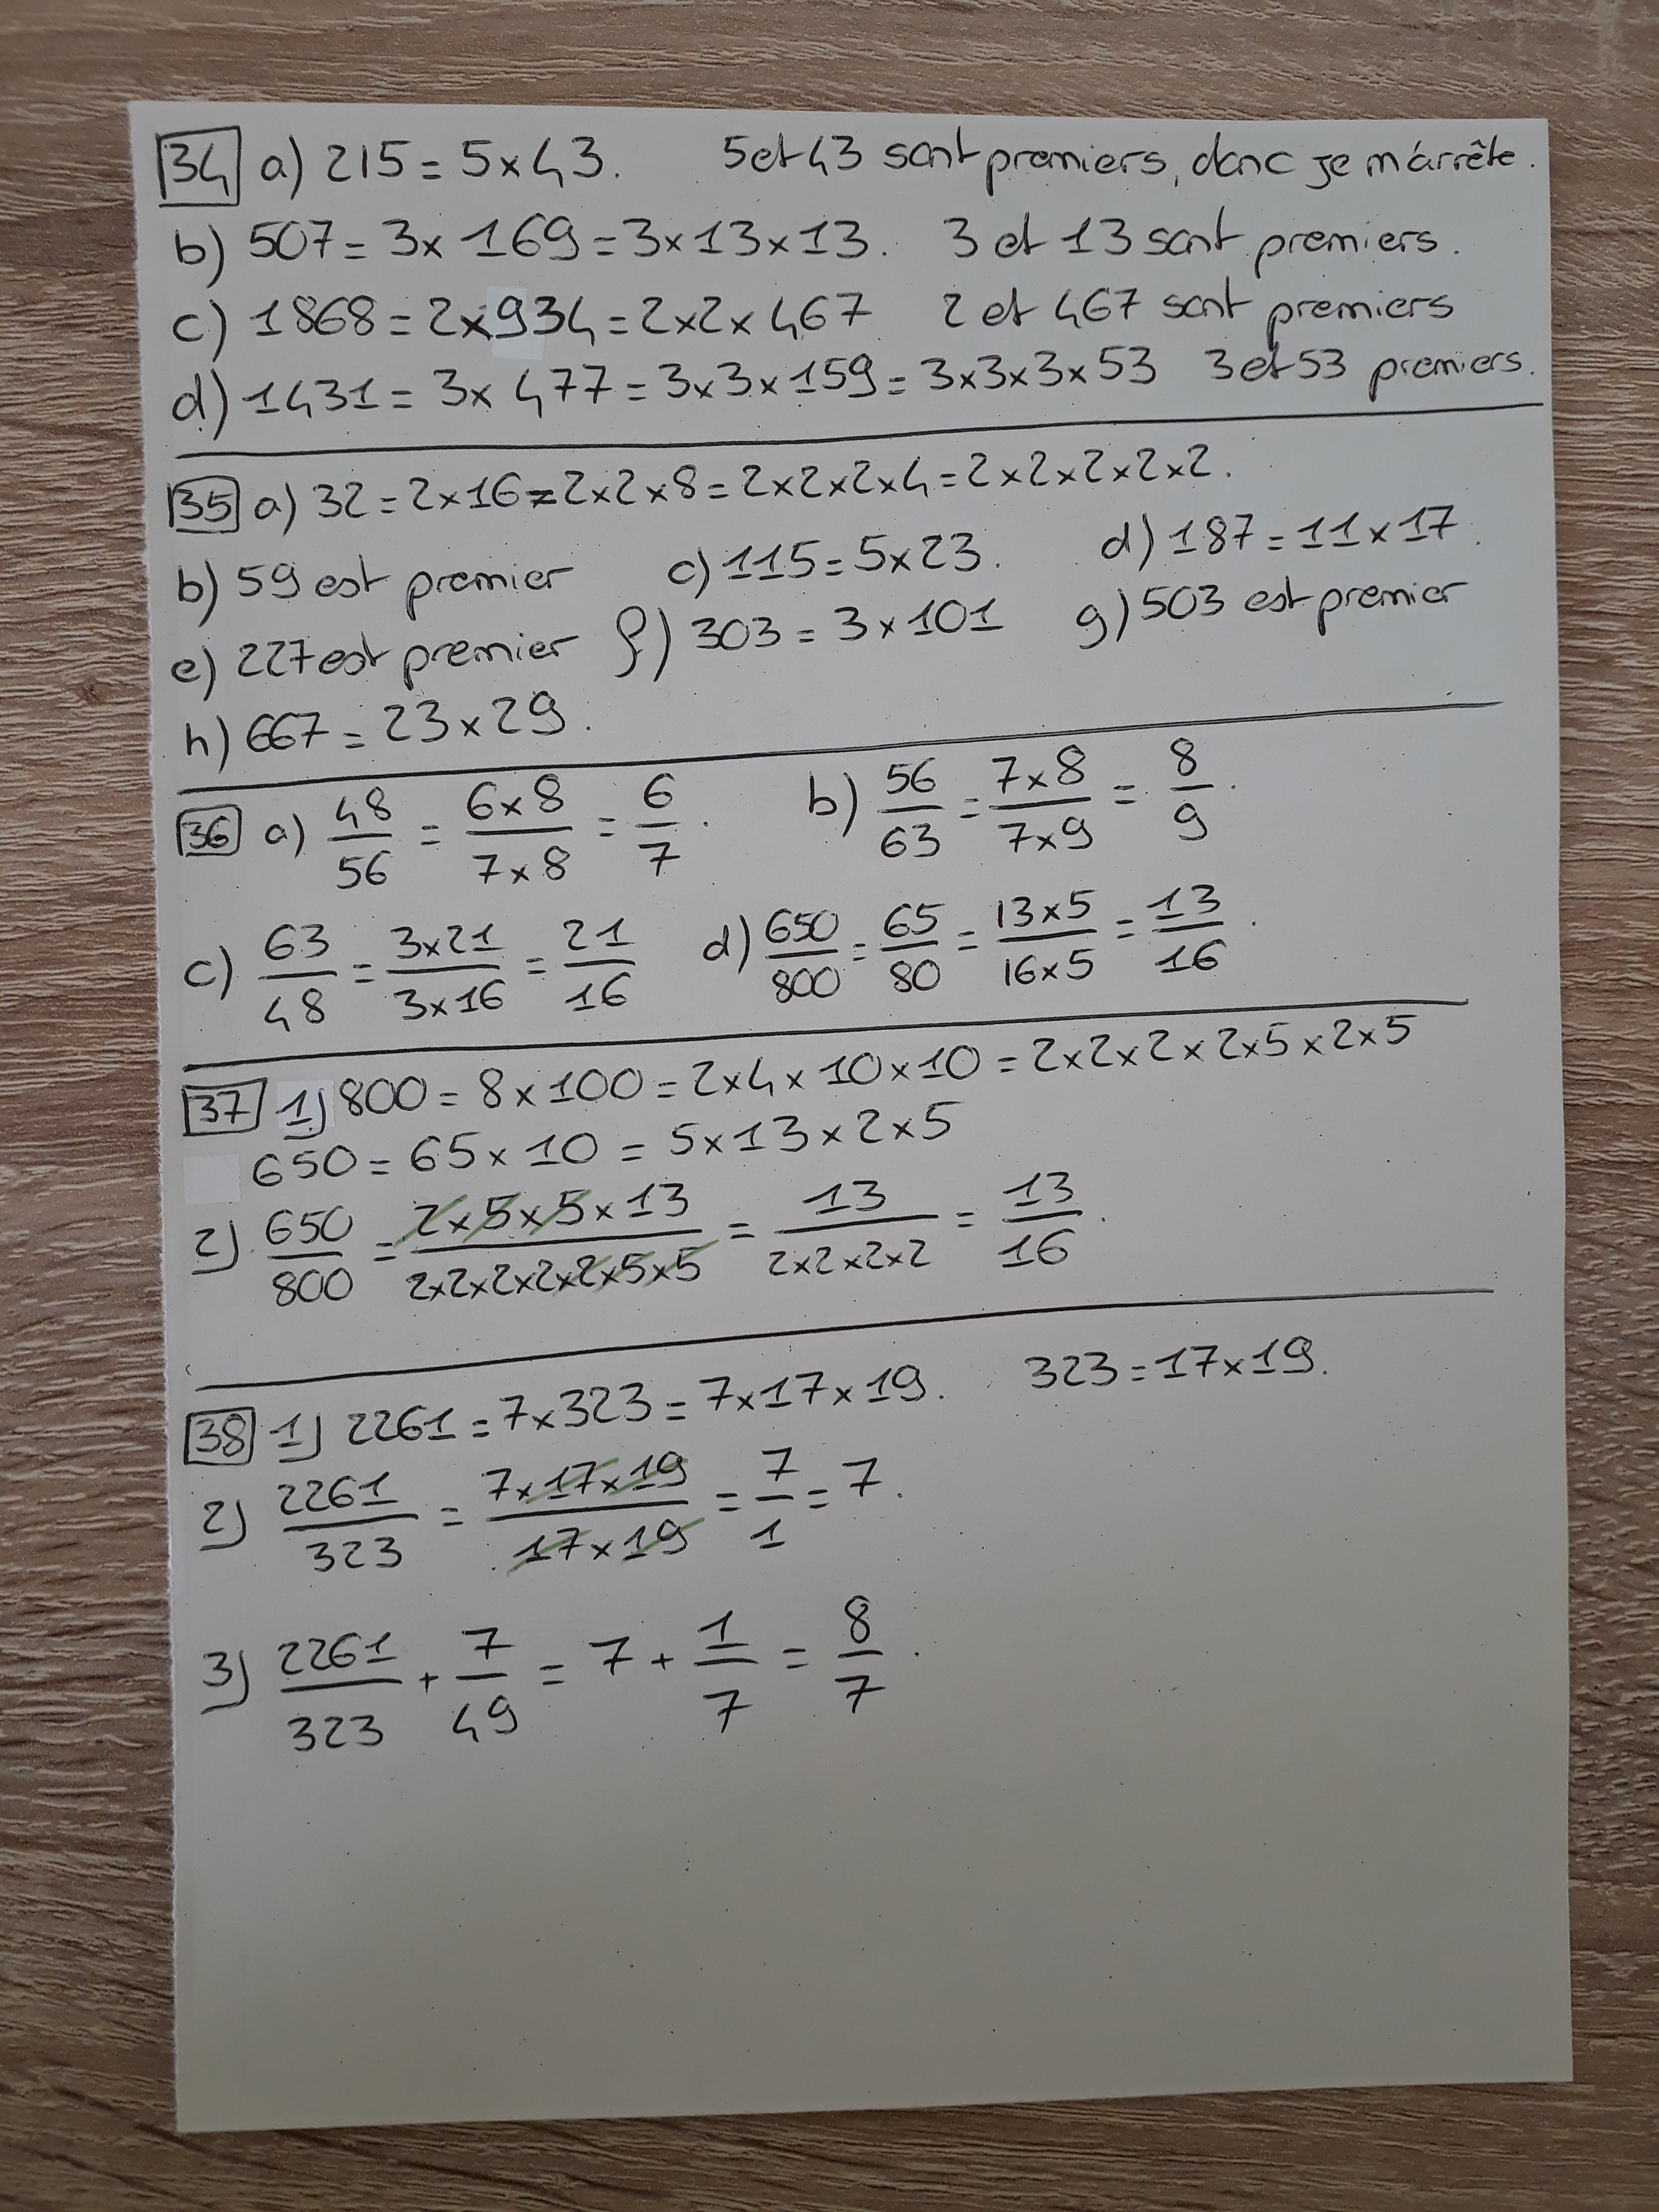 34 a) 215 = 5×43. 5 et 43 sont premiers, donc je m'arrête.
b) 507 = 3× 169 = 3×13×13. 3 et 13 sont premiers.
c) 1868 = 2×934 = 2×2×467 2 et 467 sont premiers
d) 1431 = 3× 477 = 3×3×159 = 3×3×3×53 3 et 53 premiers.
35 a) 32 = 2×16 = 2×2×8 = 2×2×2×4 = 2×2×2×2×2.
b) 59 est premier c) 115 = 5×23. d) 187 = 11×17.
e) 227 est premier f) 303 = 3×101 g) 503 est premier
h) 667 = 23×29.
36 a) 48/56 = (6×8)/(7×8) = 6/7. b) 56/63 = (7×8)/(7×9) = 8/9.
c) 63/48 = (3×21)/(3×16) = 21/16 d) 650/800 = 65/80 = (13×5)/(16×5) = 13/16.
37 1) 800 = 8×100 = 2×4×10×10 = 2×2×2×2×5×2×5
650 = 65×10 = 5×13×2×5
2) 650/800 = (2×5×5×13)/(2×2×2×2×2×5×5) = 13/(2×2×2×2) = 13/16.
38 1) 2261 = 7×323 = 7×17×19. 323 = 17×19.
2) 2261/323 = (7×17×19)/(17×19) = 7/1 = 7.
3) 2261/323 + 7/49 = 7 + 1/7 = 8/7.